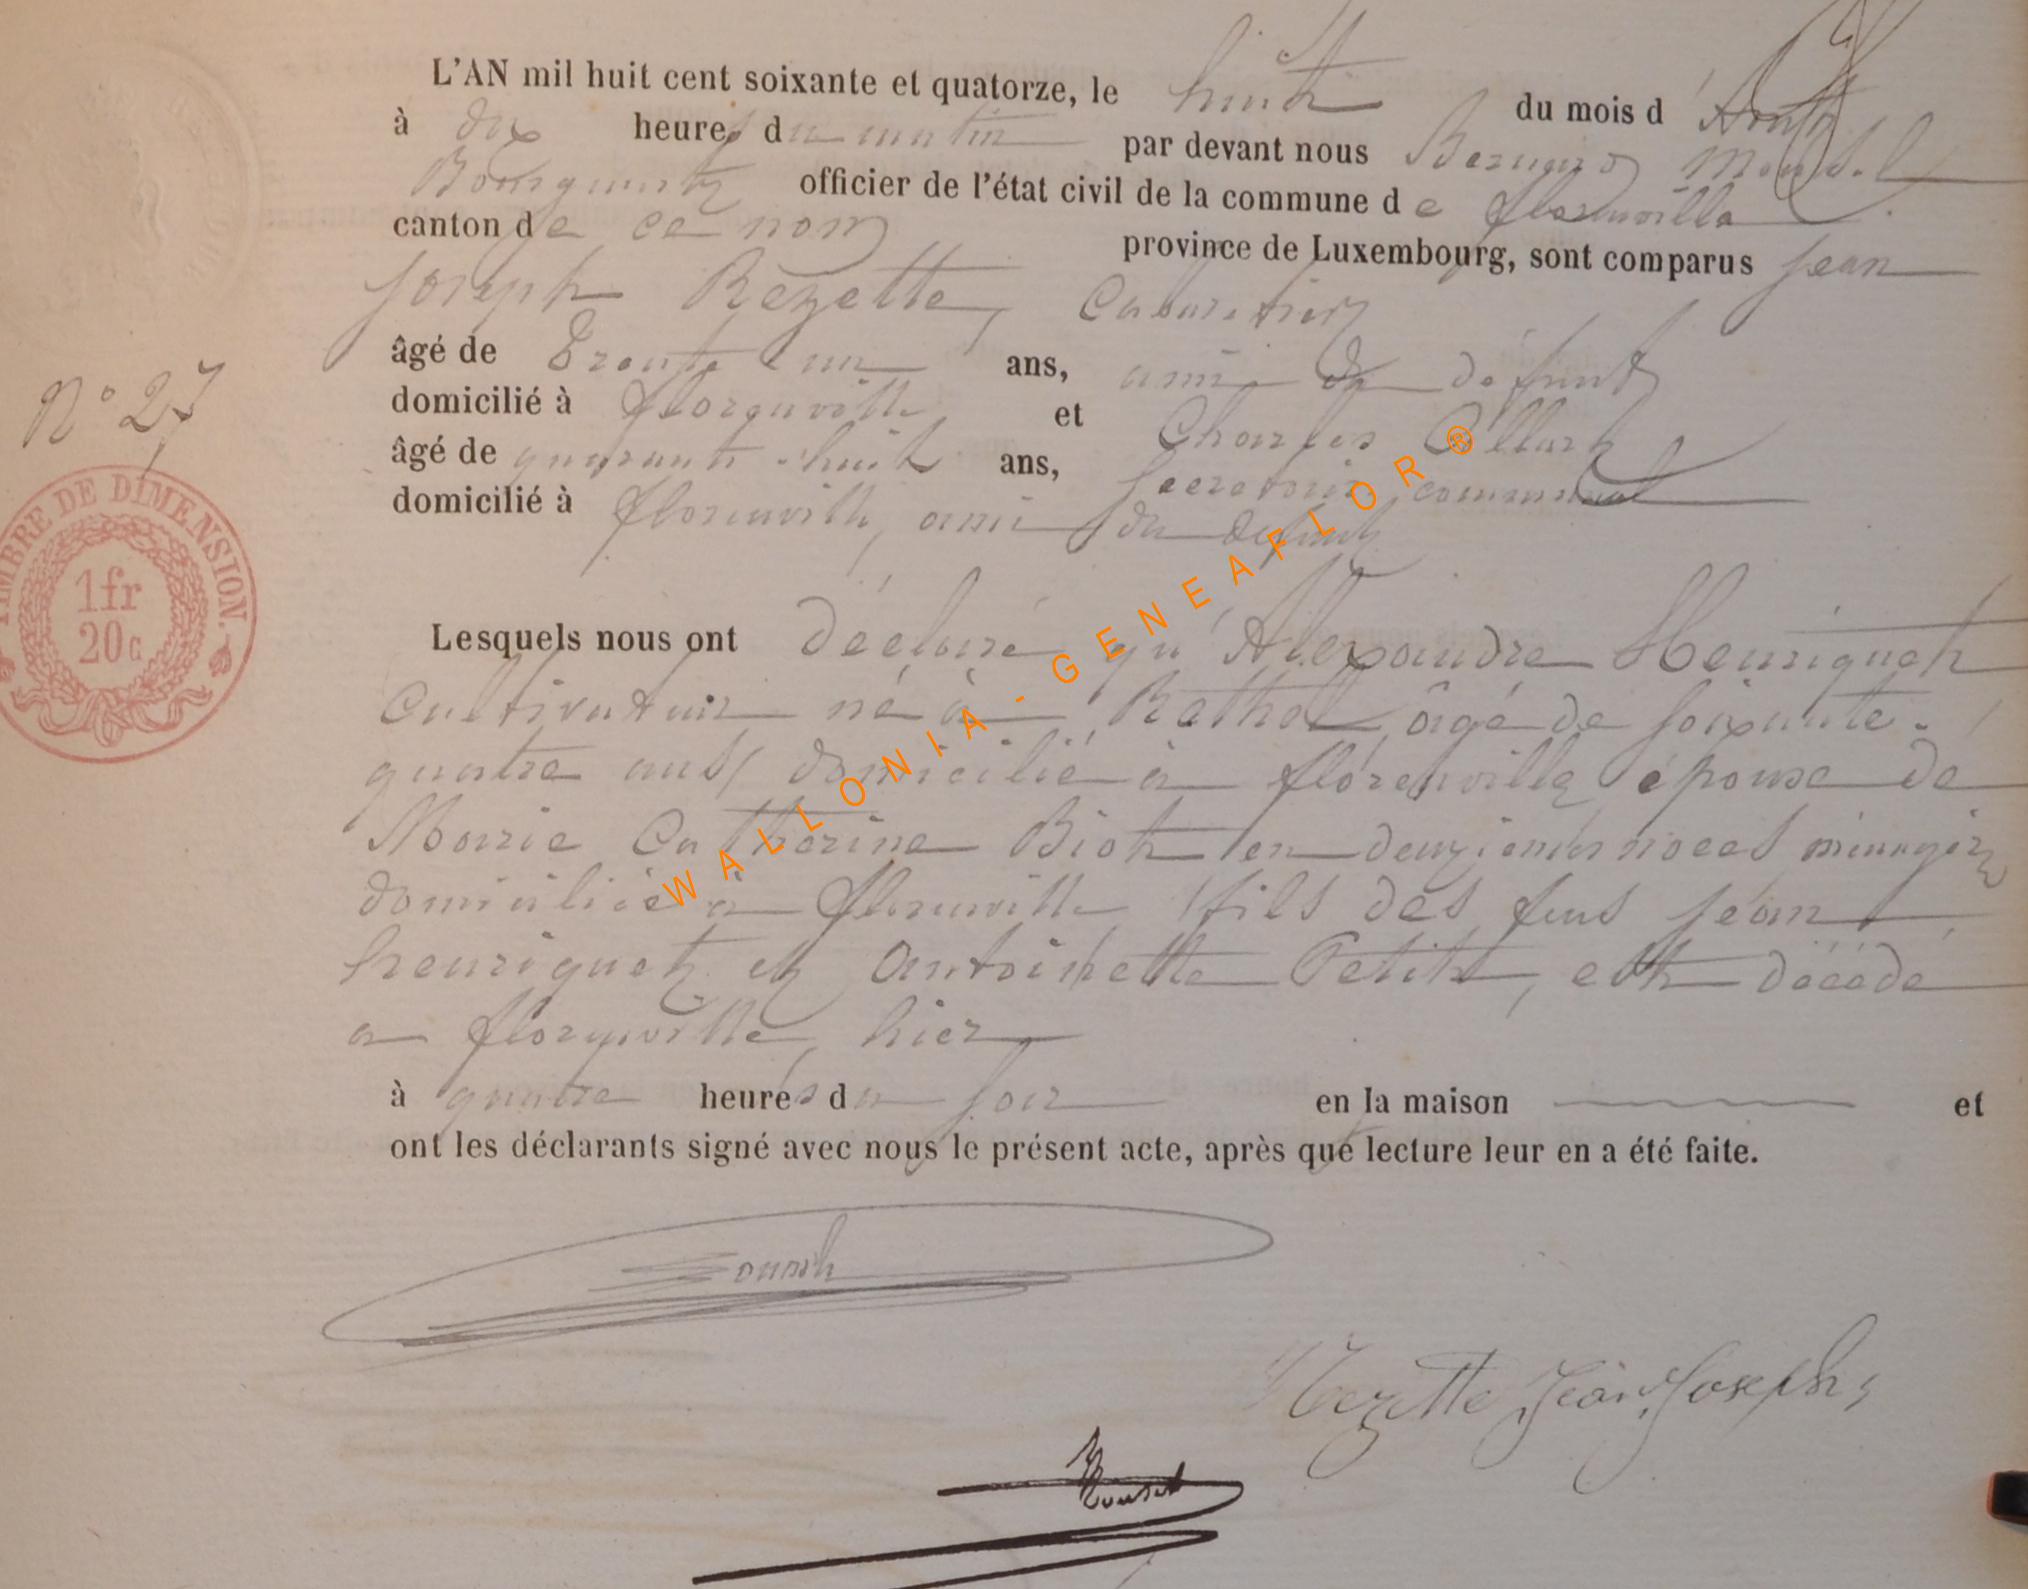 L'AN mil huit cent soixante et quatorze, le huit du mois d'Août
à dix heures du matin par devant nous Bernard
officier de l'état civil de la commune de florenville
canton de ce nom province de Luxembourg, sont comparus Jean
Joseph Rezette, Cabaretier
âgé de Trente un ans, ami du défunt
domicilié à florenville et Charles
âgé de quarante-huit ans, Secretaire communal
domicilié à florenville, ami du defunt
N° 27
TIMBRE DE DIMENSION.
1fr
20c
Lesquels nous ont déclaré qu'Alexandre Henriquet
Cultivateur né à Rethel, âgé de soixante-
quatre ans, domicilié à florenville époux de
Marie Catherine Biot en deuxièmes noces ménagère
domiciliée à florenville, fils des feus Jean
henriquet et Antoinette Petit, est décédé
a florenville, hier
à quatre heures du soir en la maison et
ont les déclarants signé avec nous le présent acte, après que lecture leur en a été faite.
Rezette Jean Joseph
WALLONIA - GENEAFLOR ®